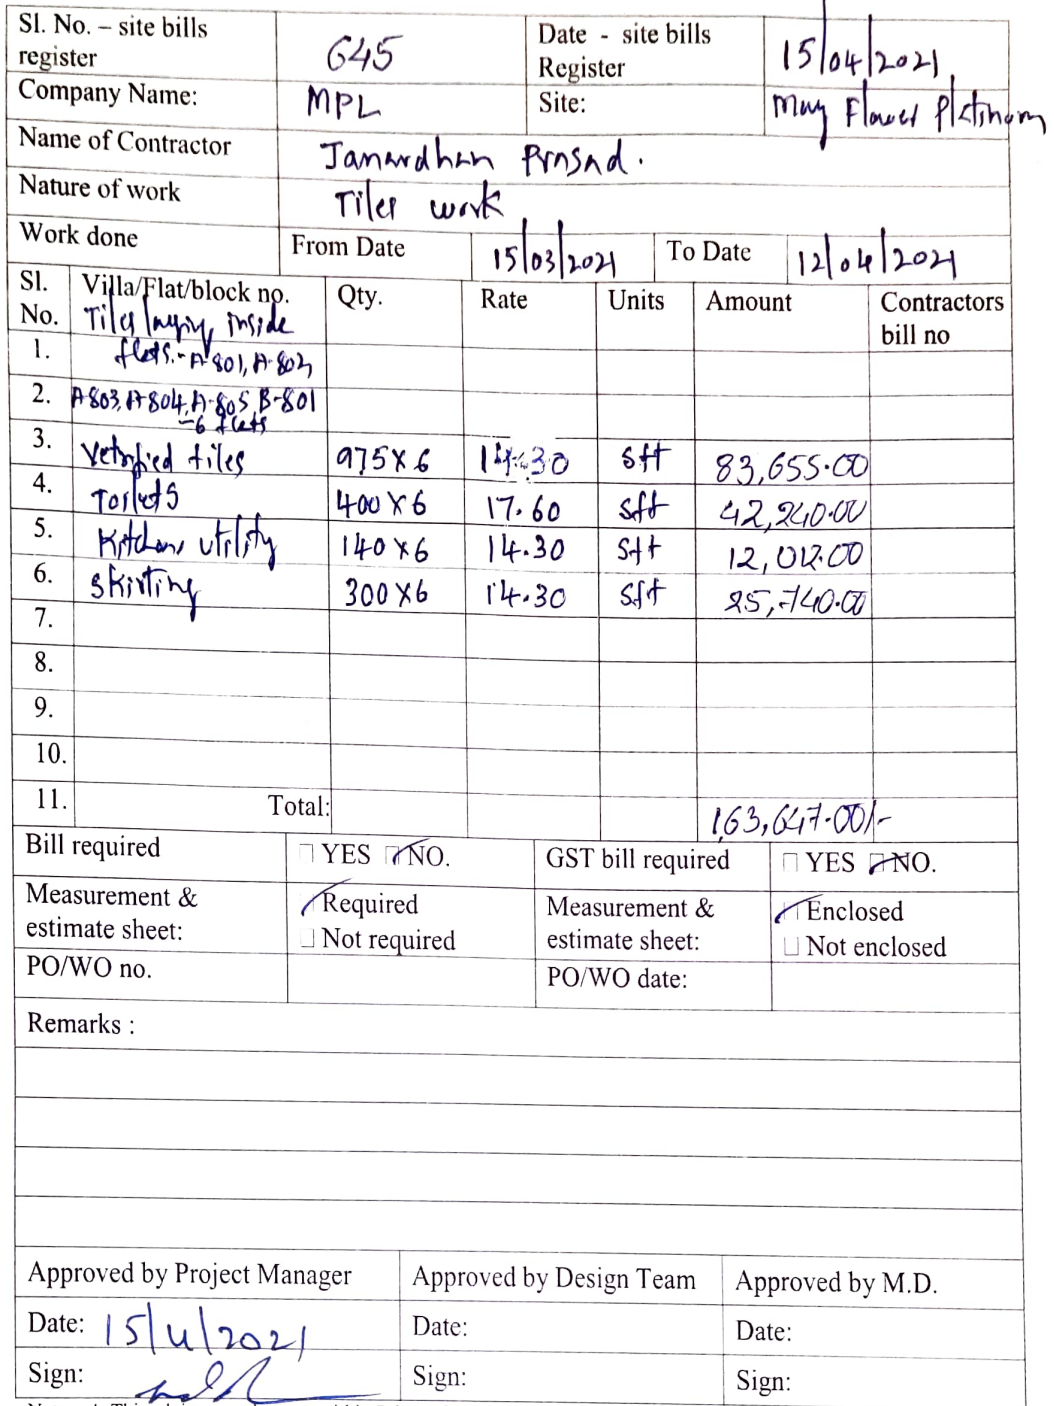 Sl. No. – site bills register 645 Date - site bills Register 15/04/2021
Company Name: MPL Site: May Flower Platinum
Name of Contractor Janardhan Prasad.
Nature of work Tiles work
Work done From Date 15/03/2021 To Date 12/04/2021
Sl. No. Villa/Flat/block no. Qty. Rate Units Amount Contractors bill no
Tiles laying inside
1. flats:- A-801, A-802,
2. A-803, A-804, A-805, B-801
-6 flats
3. Vetrified tiles 975 X 6 14.30 sft 83,655.00
4. Toilets 400 X 6 17.60 sft 42,240.00
5. Kitchen, utility 140 X 6 14.30 sft 12,012.00
6. Skirting 300 X 6 14.30 sft 25,740.00
7.
8.
9.
10.
11. Total: 163,647.00/-
Bill required YES NO. GST bill required YES NO.
Measurement & estimate sheet: Required Not required Measurement & estimate sheet: Enclosed Not enclosed
PO/WO no. PO/WO date:
Remarks :
Approved by Project Manager Approved by Design Team Approved by M.D.
Date: 15/4/2021 Date: Date:
Sign: Sign: Sign: